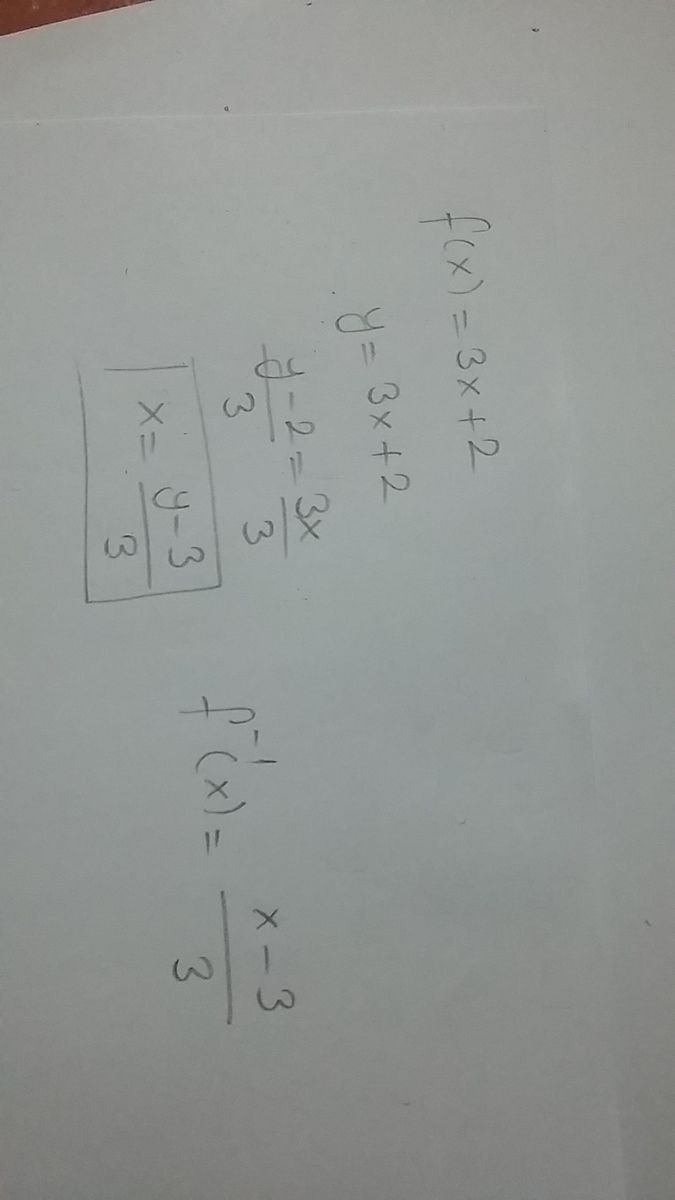 f(x) = 3x + 2
y = 3x + 2
y - 2 / 3 = 3x / 3
x = y - 3 / 3
f⁻¹(x) = x - 3 / 3